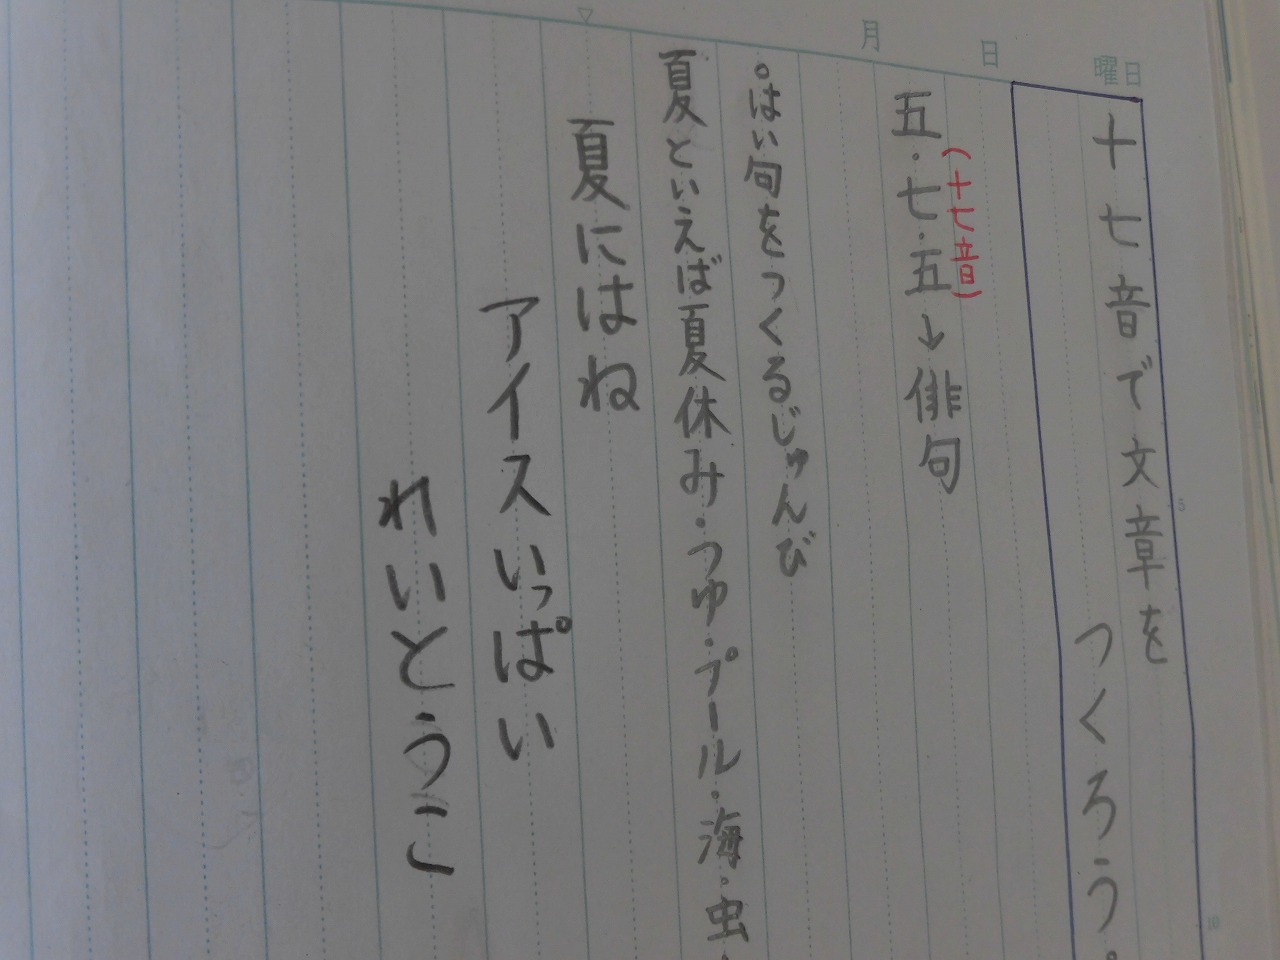 月 日 曜日
十七音で文章を
つくろう。
五・七・五→俳句
(十七音)
。はい句をつくるじゅんび
夏といえば夏休み・つゆ・プール・海・虫・
夏にはね
アイスいっぱい
れいとうこ
5
10